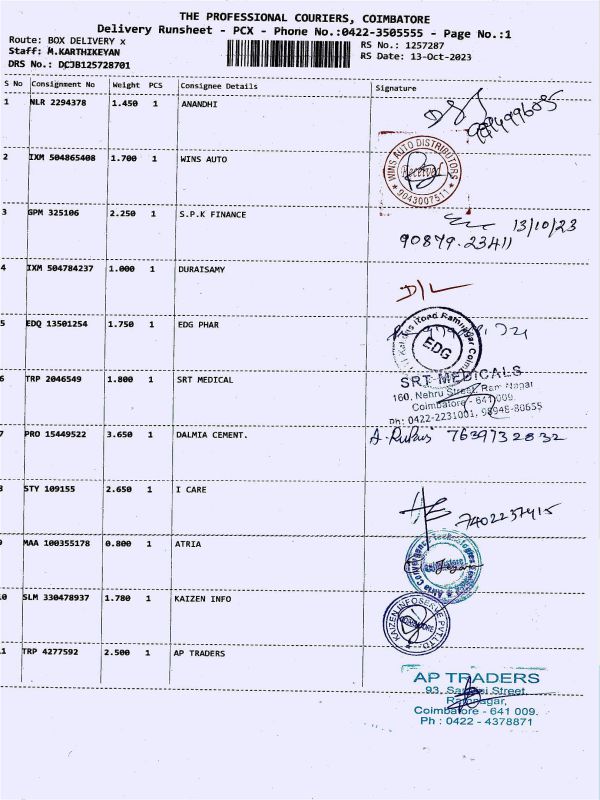 THE PROFESSIONAL COURIERS, COIMBATORE
Delivery Runsheet - PCX - Phone No.:0422-3505555 - Page No.:1
Route: BOX DELIVERY x
RS No.: 1257287
Staff: M.KARTHIKEYAN
RS Date: 13-Oct-2023
DRS No.: DCJB125728701
S No Consignment No Weight PCS Consignee Details Signature
1 NLR 2294378 1.450 1 ANANDHI
2 IXM 504865408 1.700 1 WINS AUTO
WINS AUTO DISTRIBUTORS
Received
* 9043007511 *
3 GPM 325106 2.250 1 S.P.K FINANCE
13/10/23
90879.23411
4 IXM 504784237 1.000 1 DURAISAMY
D/L
5 EDQ 13501254 1.750 1 EDG PHAR
Road Ramnagar
EDG
6 TRP 2046549 1.800 1 SRT MEDICAL
SRT MEDICALS
160, Nehru Street, Ram Nagar
Coimbatore - 641 009.
Ph: 0422-2231001, 98948-80655
7 PRO 15449522 3.650 1 DALMIA CEMENT.
7639732832
8 STY 109155 2.650 1 I CARE
9 MAA 100355178 0.800 1 ATRIA
10 SLM 330478937 1.780 1 KAIZEN INFO
KAIZEN INFOSERVE PVT. LTD
COIMBATORE
11 TRP 4277592 2.500 1 AP TRADERS
AP TRADERS
93, Street,
Ramnagar,
Coimbatore - 641 009.
Ph : 0422 - 4378871